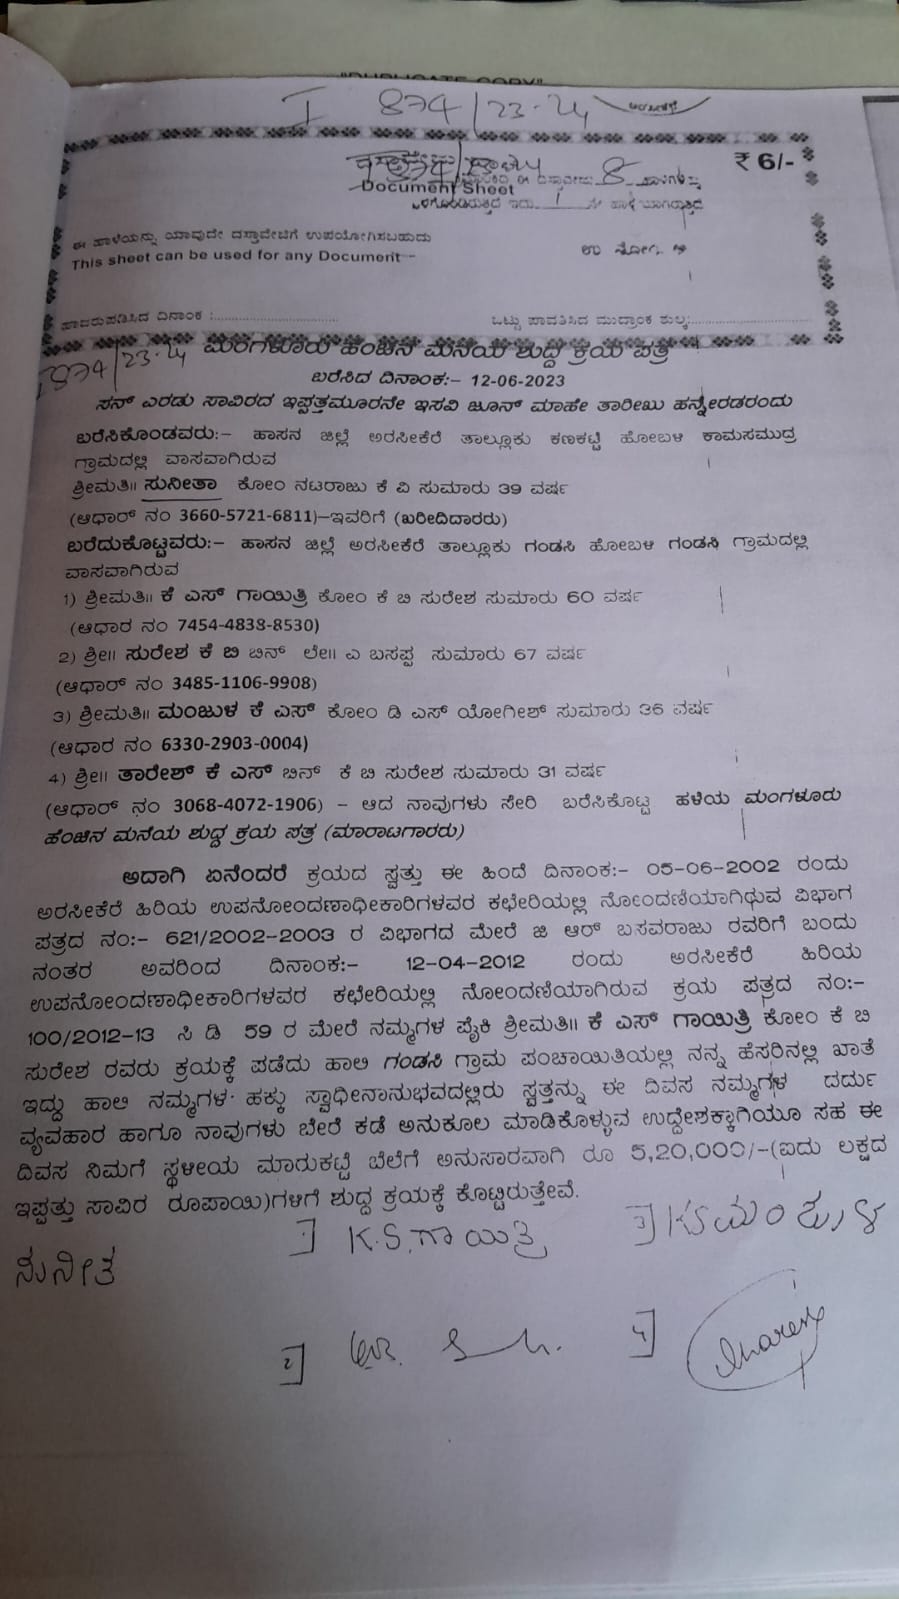 "DUPLICATE COPY"
I 874/23-24 ಅರಸೀಕೆರೆ
₹ 6/-
874/23-24 8
Document Sheet
ಒಳಗೊಂಡಿರುತ್ತದೆ ಇದು 1 ನೇ ಹಾಳೆಯಾಗಿರುತ್ತದೆ
ಈ ಹಾಳೆಯನ್ನು ಯಾವುದೇ ದಸ್ತಾವೇಜಿಗೆ ಉಪಯೋಗಿಸಬಹುದು
This sheet can be used for any Document
ಹಾಜರುಪಡಿಸಿದ ದಿನಾಂಕ :.............................. ಒಟ್ಟು ಪಾವತಿಸಿದ ಮುದ್ರಾಂಕ ಶುಲ್ಕ:..............................
I 874/23-24 ಮಂಗಳೂರು ಹೆಂಚಿನ ಮನೆಯ ಶುದ್ಧ ಕ್ರಯ ಪತ್ರ
ಬರೆಸಿದ ದಿನಾಂಕ:- 12-06-2023
ಸನ್ ಎರಡು ಸಾವಿರದ ಇಪ್ಪತ್ತಮೂರನೇ ಇಸವಿ ಜೂನ್ ಮಾಹೇ ತಾರೀಖು ಹನ್ನೇರಡರಂದು
ಬರೆಸಿಕೊಂಡವರು:- ಹಾಸನ ಜಿಲ್ಲೆ ಅರಸೀಕೆರೆ ತಾಲ್ಲೂಕು ಕಣಕಟ್ಟೆ ಹೋಬಳಿ ಕಾಮಸಮುದ್ರ
ಗ್ರಾಮದಲ್ಲಿ ವಾಸವಾಗಿರುವ
ಶ್ರೀಮತಿ॥ ಸುನೀತಾ ಕೋಂ ನಟರಾಜು ಕೆ ವಿ ಸುಮಾರು 39 ವರ್ಷ
(ಆಧಾರ್ ನಂ 3660-5721-6811)–ಇವರಿಗೆ (ಖರೀದಿದಾರರು)
ಬರೆದುಕೊಟ್ಟವರು:- ಹಾಸನ ಜಿಲ್ಲೆ ಅರಸೀಕೆರೆ ತಾಲ್ಲೂಕು ಗಂಡಸಿ ಹೋಬಳಿ ಗಂಡಸಿ ಗ್ರಾಮದಲ್ಲಿ
ವಾಸವಾಗಿರುವ
1) ಶ್ರೀಮತಿ॥ ಕೆ ಎಸ್ ಗಾಯಿತ್ರಿ ಕೋಂ ಕೆ ಬಿ ಸುರೇಶ ಸುಮಾರು 60 ವರ್ಷ
(ಆಧಾರ ನಂ 7454-4838-8530)
2) ಶ್ರೀ॥ ಸುರೇಶ ಕೆ ಬಿ ಬಿನ್ ಲೇ॥ ಎ ಬಸಪ್ಪ ಸುಮಾರು 67 ವರ್ಷ
(ಆಧಾರ್ ನಂ 3485-1106-9908)
3) ಶ್ರೀಮತಿ॥ ಮಂಜುಳ ಕೆ ಎಸ್ ಕೋಂ ಡಿ ಎಸ್ ಯೋಗೀಶ್ ಸುಮಾರು 36 ವರ್ಷ
(ಆಧಾರ ನಂ 6330-2903-0004)
4) ಶ್ರೀ॥ ತಾರೇಶ್ ಕೆ ಎಸ್ ಬಿನ್ ಕೆ ಬಿ ಸುರೇಶ ಸುಮಾರು 31 ವರ್ಷ
(ಆಧಾರ್ ನಂ 3068-4072-1906) – ಆದ ನಾವುಗಳು ಸೇರಿ ಬರೆಸಿಕೊಟ್ಟ ಹಳೆಯ ಮಂಗಳೂರು
ಹೆಂಚಿನ ಮನೆಯ ಶುದ್ಧ ಕ್ರಯ ಪತ್ರ (ಮಾರಾಟಗಾರರು)
ಅದಾಗಿ ಏನೆಂದರೆ ಕ್ರಯದ ಸ್ವತ್ತು ಈ ಹಿಂದೆ ದಿನಾಂಕ:- 05-06-2002 ರಂದು
ಅರಸೀಕೆರೆ ಹಿರಿಯ ಉಪನೋಂದಣಾಧೀಕಾರಿಗಳವರ ಕಛೇರಿಯಲ್ಲಿ ನೋಂದಣಿಯಾಗಿರುವ ವಿಭಾಗ
ಪತ್ರದ ನಂ:- 621/2002-2003 ರ ವಿಭಾಗದ ಮೇರೆ ಜಿ ಆರ್ ಬಸವರಾಜು ರವರಿಗೆ ಬಂದು
ನಂತರ ಅವರಿಂದ ದಿನಾಂಕ:- 12-04-2012 ರಂದು ಅರಸೀಕೆರೆ ಹಿರಿಯ
ಉಪನೋಂದಣಾಧೀಕಾರಿಗಳವರ ಕಛೇರಿಯಲ್ಲಿ ನೋಂದಣಿಯಾಗಿರುವ ಕ್ರಯ ಪತ್ರದ ನಂ:-
100/2012-13 ಸಿ ಡಿ 59 ರ ಮೇರೆ ನಮ್ಮಗಳ ಪೈಕಿ ಶ್ರೀಮತಿ॥ ಕೆ ಎಸ್ ಗಾಯಿತ್ರಿ ಕೋಂ ಕೆ ಬಿ
ಸುರೇಶ ರವರು ಕ್ರಯಕ್ಕೆ ಪಡೆದು ಹಾಲಿ ಗಂಡಸಿ ಗ್ರಾಮ ಪಂಚಾಯಿತಿಯಲ್ಲಿ ನನ್ನ ಹೆಸರಿನಲ್ಲಿ ಖಾತೆ
ಇದ್ದು ಹಾಲಿ ನಮ್ಮಗಳ ಹಕ್ಕು ಸ್ವಾಧೀನಾನುಭವದಲ್ಲಿರು ಸ್ವತ್ತನ್ನು ಈ ದಿವಸ ನಮ್ಮಗಳ ದರ್ದು
ವ್ಯವಹಾರ ಹಾಗೂ ನಾವುಗಳು ಬೇರೆ ಕಡೆ ಅನುಕೂಲ ಮಾಡಿಕೊಳ್ಳುವ ಉದ್ದೇಶಕ್ಕಾಗಿಯೂ ಸಹ ಈ
ದಿವಸ ನಿಮಗೆ ಸ್ಥಳೀಯ ಮಾರುಕಟ್ಟೆ ಬೆಲೆಗೆ ಅನುಸಾರವಾಗಿ ರೂ 5,20,000/-(ಐದು ಲಕ್ಷದ
ಇಪ್ಪತ್ತು ಸಾವಿರ ರೂಪಾಯಿ)ಗಳಿಗೆ ಶುದ್ಧ ಕ್ರಯಕ್ಕೆ ಕೊಟ್ಟಿರುತ್ತೇವೆ.
1] K.S.ಗಾಯಿತ್ರಿ 3] KSಮಂಜುಳ
ಸುನೀತ
2] 4]